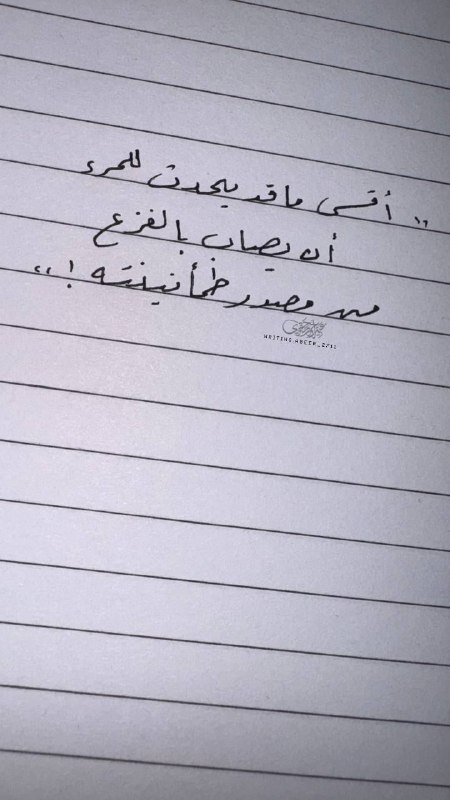 " أقسى ما قد يحدث للمرء
أن يصاب بالفزع
من مصدر طمأنينته ! "